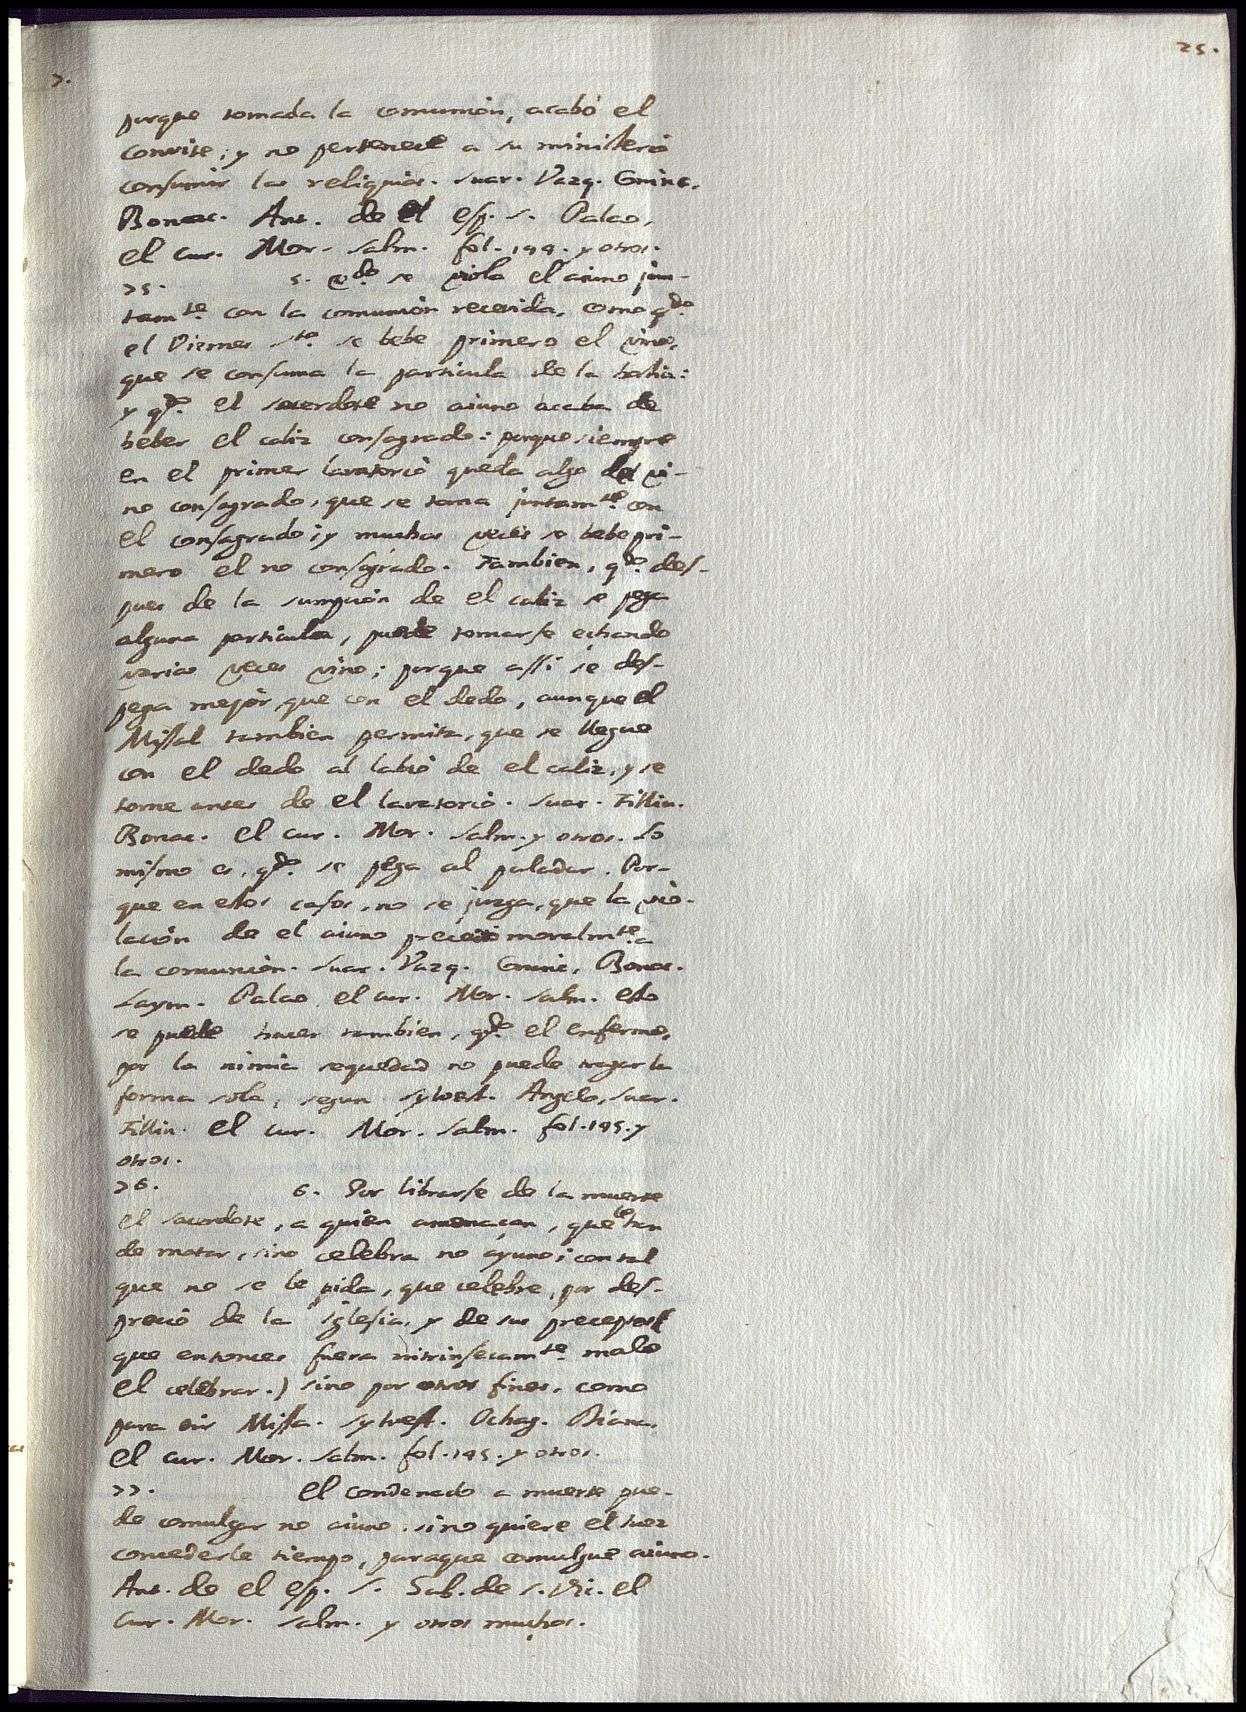 25.
7.
porque tomada la comunion, acabó el
convite; y no pertenece a su ministerio
consumir las reliquias. Suar. Vazq. Gran.
Bonac. Ant. de el esp. s. Palao,
el cur. Mor. Salm. fol. 194. y otros.
75. 5. Qdo. se viola el aiuno jun-
tamte. con la comunion recevida, como qdo.
el Viernes sto. se bebe primero el vino,
que se consuma la particula de la hostia:
y qdo. el sacerdote no aiuno acaba de
beber el caliz consagrado: porque siempre
en el primer lavatorio queda algo del vi-
no consagrado, que se toma juntamte. con
el consagrado; y muchas veces se bebe pri-
mero el no consagrado. Tambien, qdo. des-
pues de la sumpcion de el caliz se pega
alguna particula, puede tomarse echando
varias veces vino; porque assi se des-
pega mejor, que con el dedo, aunque el
Missal tambien permita, que se llegue
con el dedo al labio de el caliz, y se
tome antes de el lavatorio. Suar. Filliu.
Bonac. el cur. Mor. Salm. y otros. Lo
mismo es, qdo. se pega al paladar. Por-
que en estos casos, no se juzga, que la vio-
lacion de el aiuno precedió moralmte. a
la comunion. Suar. Vazq. Bonac.
Laym. Palao, el cur. Mor. Salm. esto
se puede hacer tambien, qdo. el enfermo,
por la nimia sequedad no puede tragar la
forma sola, segun Sylvest. Angelo, Suar.
Filliu. el cur. Mor. Salm. fol. 195. y
otros.
76. 6. Por librarse de la muerte
el sacerdote, a quien amenaçan, que le han
de matar, sino celebra no ayuno; con tal
que no se le pida, que celebre, por des-
precio de la Iglesia, y de sus preceptos (
que entonces fuera intrinsecamte. malo
el celebrar.) sino por otros fines, como
para oir Missa. Sylvest. Ochag. Diana,
el cur. Mor. Salm. fol. 195. y otros.
77. el condenado a muerte pue-
de comulgar no aiuno, sino quiere el Juez
concederle tiempo, paraque comulgue aiuno.
Ant. de el esp. S. Sub. de s. el
Cur. Mor. Salm. y otros muchos.